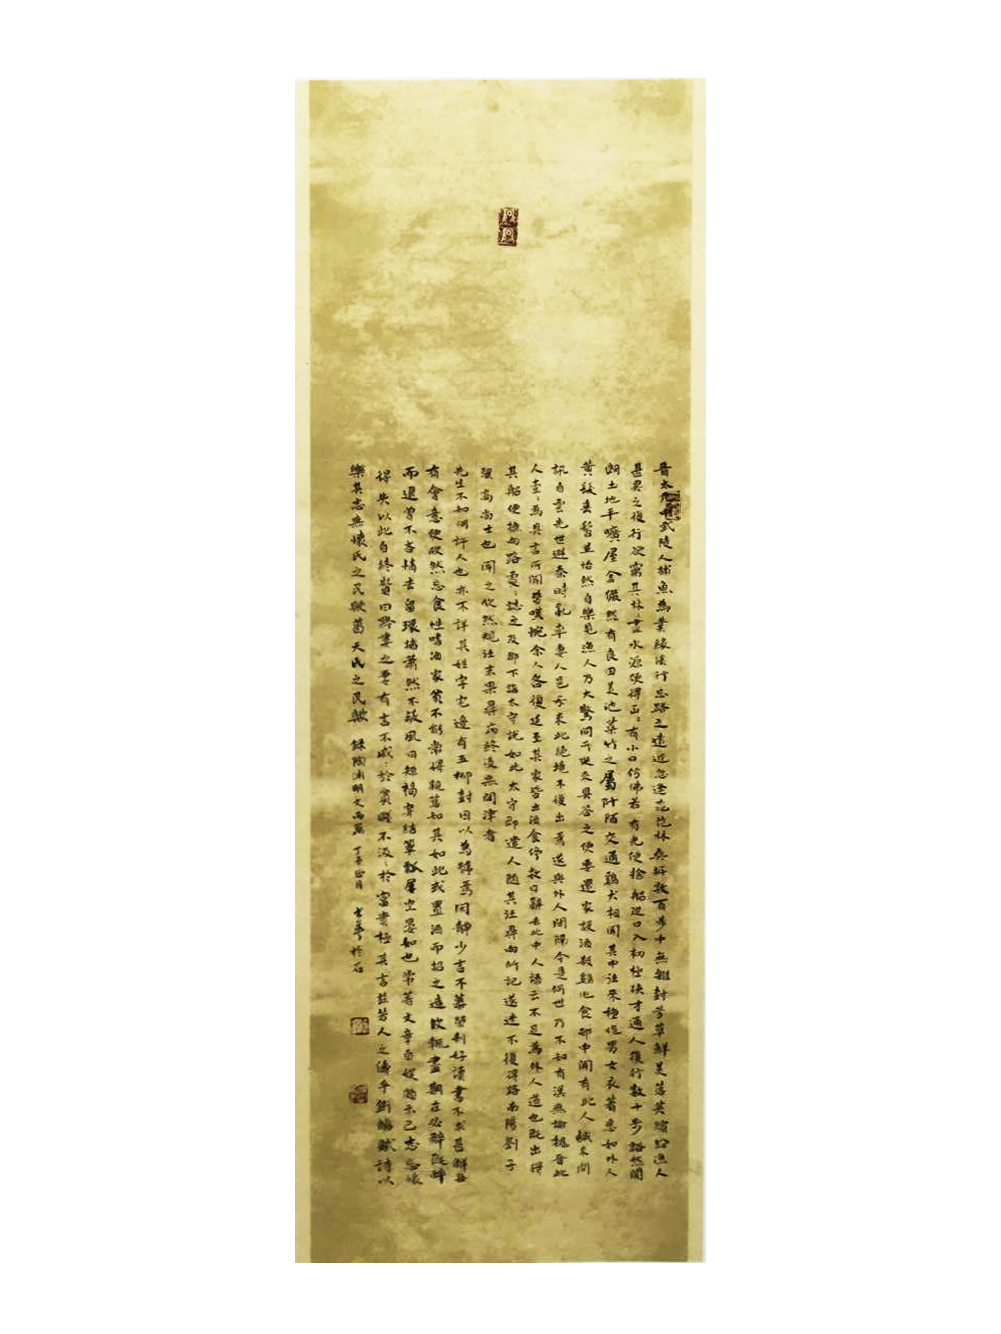 晉太元中武陵人捕魚為業緣溪行忘路之遠近忽逢桃花林夾岸數百步中無雜封芳草鮮美落英繽紛漁人
甚異之復行欲窮其林林盡水源便得山山有小口仿佛若有光便捨船從口入初極狹才通人復行數十步豁然開
朗土地平曠屋舍儼然有良田美池桑竹之屬阡陌交通雞犬相聞其中往來種作男女衣著悉如外人
黃髮垂髫並怡然自樂見漁人乃大驚問所從來具答之便要還家設酒殺雞作食邨中聞有此人咸來問
訊自雲先世避秦時亂率妻人邑子來此絕境不復出焉遂與外人間隔今是何世乃不知有漢無論魏晉此
人一一為具言所聞皆嘆惋余人各復延至其家皆出酒食停數日辭去此中人語云不足為外人道也既出得
其船便扶向路處處志之及郡下詣太守說如此太守即遣人隨其往尋向所記遂迷不復得路南陽劉子
驥高尚士也聞之欣然規往未果尋病終後無問津者
先生不知何許人也亦不詳其姓字宅邊有五柳封因以為號焉閑靜少言不慕榮利好讀書不求甚解每
有會意便欣然忘食性嗜酒家貧不能常得親舊知其如此或置酒而招之造飲輒盡期在必醉既醉
而退曾不吝情去留環堵蕭然不蔽風日短褐穿結簞瓢屢空晏如也常著文章自娛頗示己志忘懷
得失以此自終贊曰黔婁之妻有言不戚戚於貧賤不汲汲於富貴極其言茲若人之儔乎銜觴賦詩以
樂其志無懷氏之民歟葛天氏之民歟 錄陶淵明文兩篇